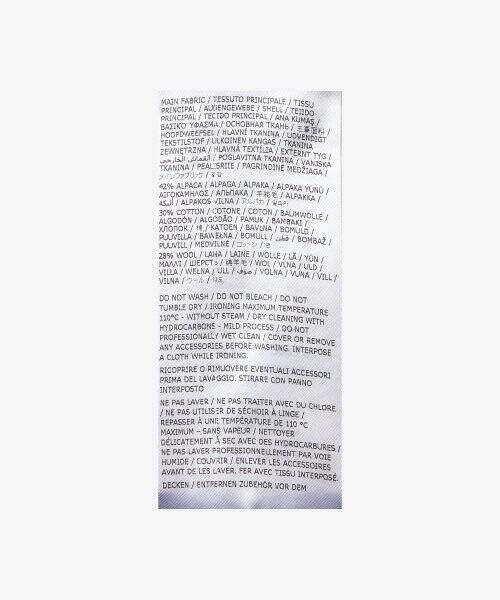 MAIN FABRIC / TESSUTO PRINCIPALE / TISSU
PRINCIPAL / AUßENGEWEBE / SHELL / TEJIDO
PRINCIPAL / TECIDO PRINCIPAL / ANA KUMAŞ /
ΒΑΣΙΚΟ ΥΦΑΣΜΑ / ОСНОВНАЯ ТКАНЬ / 主要面料 /
HOOFDWEEFSEL / HLAVNÍ TKANINA / UDVENDIGT
TEKSTILSTOF / ULKOINEN KANGAS / TKANINA
ZEWNĘTRZNA / HLAVNÁ TEXTÍLIA / EXTERNT TYG /
القماش الخارجي / POGLAVITNA TKANINA / VANJSKA
TKANINA / PEALISRIIE / PAGRINDINĖ MEDŽIAGA /
メインファブリック / 겉감
42% ALPACA / ALPAGA / ALPAKA / ALPAKA YÜNÜ /
ΑΙΓΟΚΑΜΗΛΟΣ / АЛЬПАКА / 羊驼毛 / ALPAKKA /
ألبكة / ALPAKOS VILNA / アルパカ / 알파카
30% COTTON / COTONE / COTON / BAUMWOLLE /
ALGODÓN / ALGODÃO / PAMUK / ΒΑΜΒΑΚΙ /
ХЛОПОК / 棉 / KATOEN / BAVLNA / BOMULD /
PUUVILLA / BAWEŁNA / BOMULL / قطن / BOMBAŽ /
PUUVILL / MEDVILNĖ / コットン / 면
28% WOOL / LANA / LAINE / WOLLE / LÃ / YÜN /
ΜΑΛΛΙ / ШЕРСТЬ / 绵羊毛 / WOL / VLNA / ULD /
VILLA / WEŁNA / ULL / صوف / VOLNA / VUNA / VILL /
VILNA / ウール /
DO NOT WASH / DO NOT BLEACH / DO NOT
TUMBLE DRY / IRONING MAXIMUM TEMPERATURE
110°C - WITHOUT STEAM / DRY CLEANING WITH
HYDROCARBONS - MILD PROCESS / DO NOT
PROFESSIONALLY WET CLEAN / COVER OR REMOVE
ANY ACCESSORIES BEFORE WASHING. INTERPOSE
A CLOTH WHILE IRONING.
RICOPRIRE O RIMUOVERE EVENTUALI ACCESSORI
PRIMA DEL LAVAGGIO. STIRARE CON PANNO
INTERPOSTO
NE PAS LAVER / NE PAS TRAITER AVEC DU CHLORE
/ NE PAS UTILISER DE SÉCHOIR À LINGE /
REPASSER À UNE TEMPÉRATURE DE 110 °C
MAXIMUM – SANS VAPEUR / NETTOYER
DÉLICATEMENT À SEC AVEC DES HYDROCARBURES /
NE PAS LAVER PROFESSIONNELLEMENT PAR VOIE
HUMIDE / COUVRIR / ENLEVER LES ACCESSOIRES
AVANT DE LES LAVER. FER AVEC TISSU INTERPOSÉ.
DECKEN / ENTFERNEN ZUBEHÖR VOR DEM